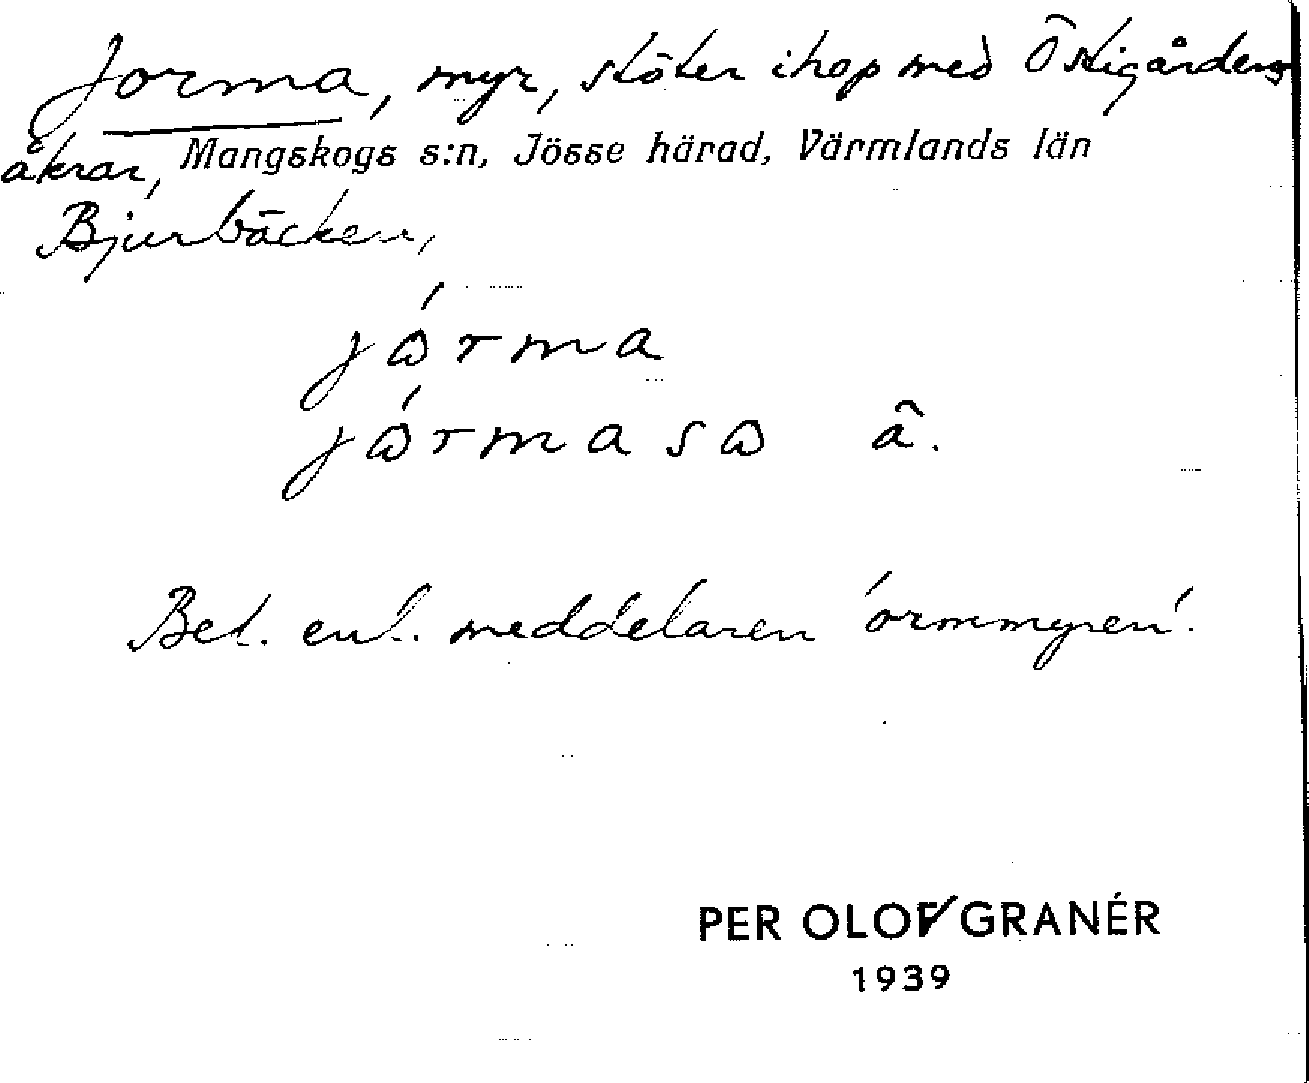 Jorma, myr, stöter ihop med Östigårdens
åkrar, Mangskogs s:n, Jösse härad, Värmlands län
Bjurbäcken,
jórma
jórmasɷ â.
Bet. enl. meddelaren 'ormmyren'.
PER OLOF GRANÉR
1939